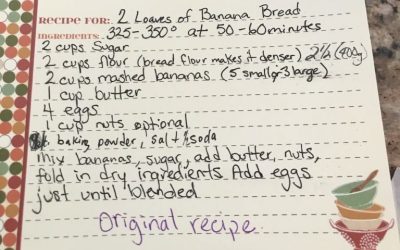 RECIPE FOR: 2 Loaves of Banana Bread
INGREDIENTS: 325-350° at 50-60 minutes
2 cups sugar
2 cups flour (bread flour makes it denser) 2¼ (400g)
2 cups mashed bananas (5 small or 3 large)
1 cup butter
4 eggs
1 cup nuts optional
baking powder, salt & soda
mix bananas, sugar, add butter, nuts,
fold in dry ingredients Add eggs
just until blended
Original recipe